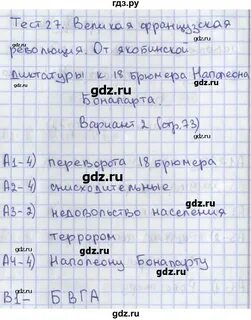 гдз.ру
Тест 27. Великая французская
революция. От якобинской
диктатуры к 18 брюмера Наполеона
Бонапарта.
Вариант 2 (стр.73)
А1-4) переворота 18 брюмера
А2-4) снисходительные
А3-2) недовольство населения
террором
А4-4) Наполеону Бонапарту
В1- Б В Г А